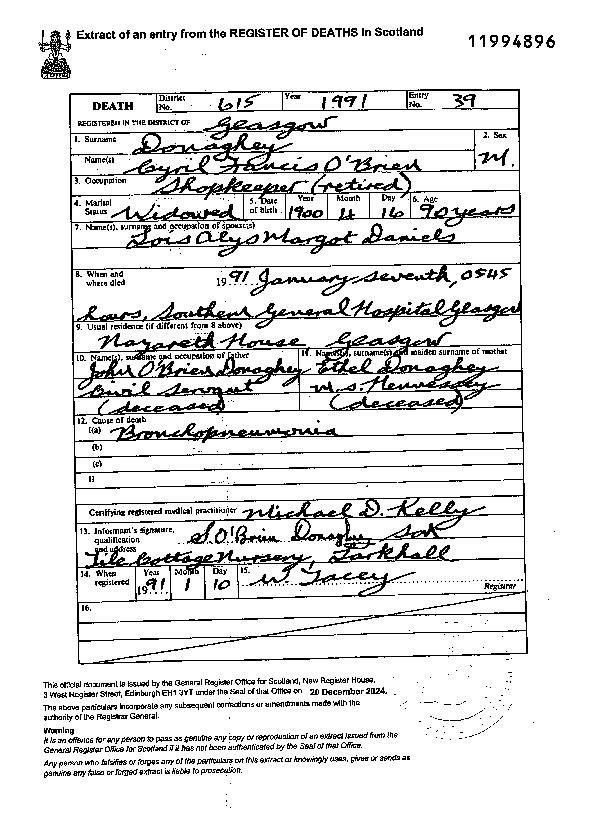 Extract of an entry from the REGISTER OF DEATHS in Scotland
11994896
DEATH District No. 615 Year 1991 Entry No. 39
REGISTERED IN THE DISTRICT OF Glasgow
1. Surname Donaghey 2. Sex
Name(s) Cyril Francis O'Brien M.
3. Occupation Shopkeeper (retired)
4. Marital Status Widowed 5. Date of birth Year 1900 Month 4 Day 16 6. Age 90 years
7. Name(s), surname and occupation of spouse(s)
Lois Alys Margot Daniels
8. When and where died 1991 January seventh, 0545
hours, Southern General Hospital Glasgow
9. Usual residence (if different from 8 above)
Nazareth House Glasgow
10. Name(s), surname and occupation of father 11. Name(s), surname(s) and maiden surname of mother
John O'Brien Donaghey Ethel Donaghey
Civil Servant m.s. Hennessey
(deceased) (deceased)
12. Cause of death
I(a) Bronchopneumonia
(b)
(c)
II
Certifying registered medical practitioner Michael D. Kelly
13. Informant's signature, qualification and address S. O'Brien Donaghey Son
Tile Cottage Nursery, Larkhall
14. When registered Year 1991 Month 1 Day 10 15. W Tacey
Registrar
16.
This official document is issued by the General Register Office for Scotland, New Register House,
3 West Register Street, Edinburgh EH1 3YT under the Seal of that Office on 20 December 2024.
The above particulars incorporate any subsequent corrections or amendments made with the
authority of the Registrar General.
Warning
It is an offence for any person to pass as genuine any copy or reproduction of an extract issued from the
General Register Office for Scotland if it has not been authenticated by the Seal of that Office.
Any person who falsifies or forges any of the particulars on this extract or knowingly uses, gives or sends as
genuine any false or forged extract is liable to prosecution.